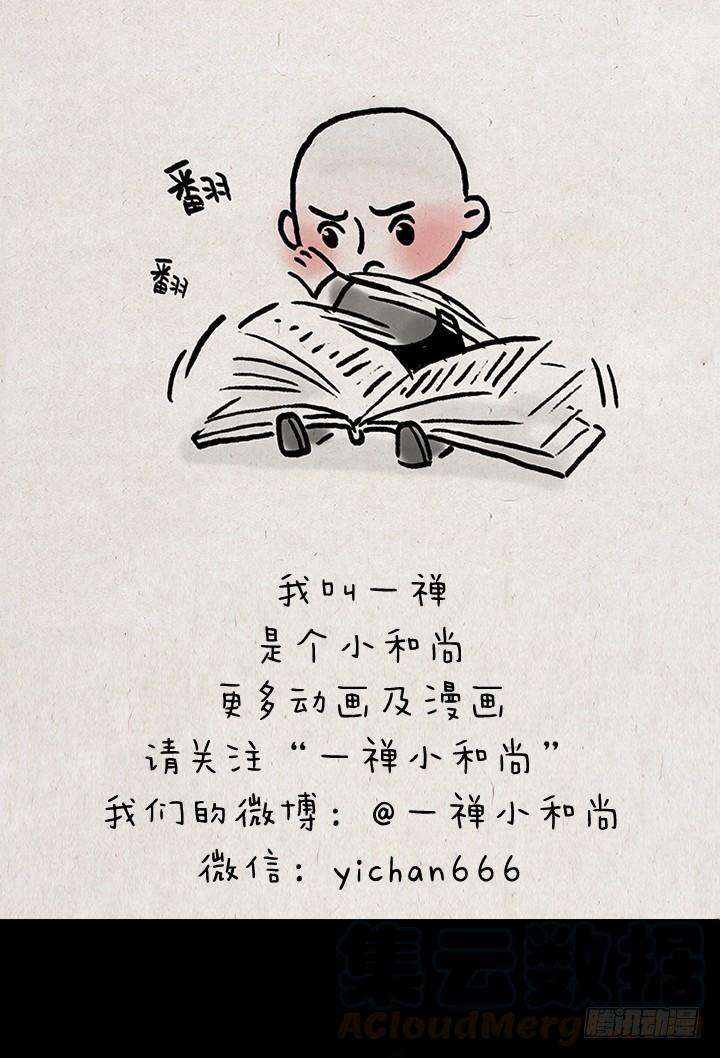 翻
翻
我叫一禅
是个小和尚
更多动画及漫画
请关注“一禅小和尚”
我们的微博：@一禅小和尚
微信：yichan666
集云数据
ACloudMerge
腾讯动漫